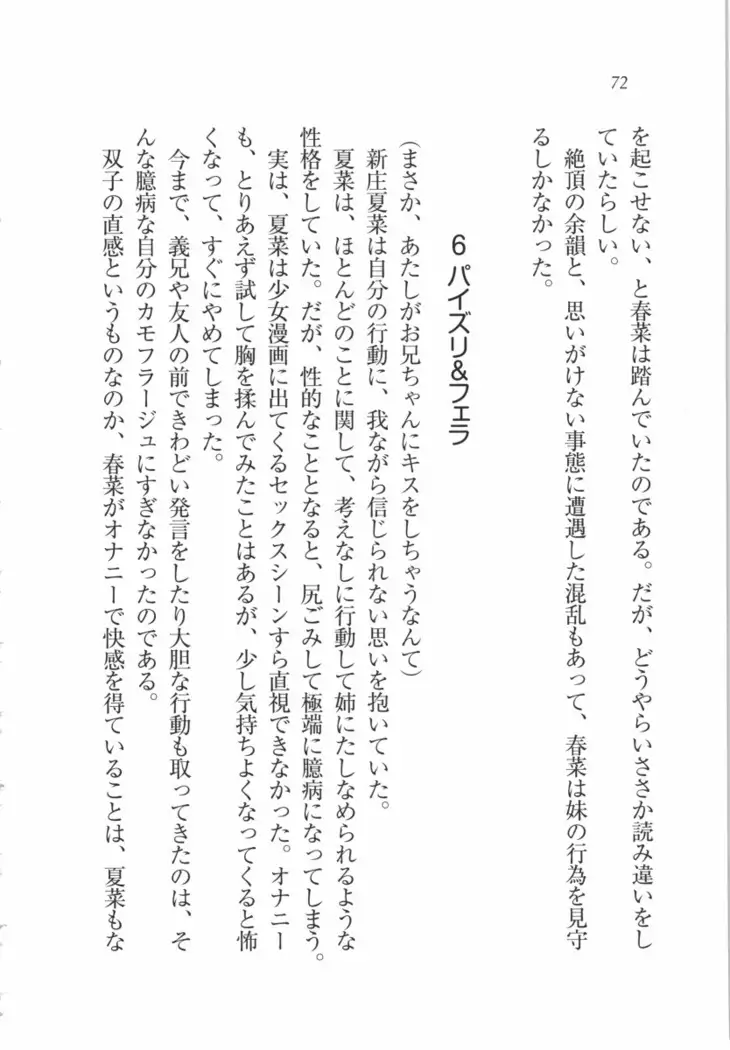 72
を起こせない、と春菜は踏んでいたのである。だが、どうやらいささか読み違いをし
ていたらしい。
絶頂の余韻と、思いがけない事態に遭遇した混乱もあって、春菜は妹の行為を見守
るしかなかった。
6 パイズリ&フェラ
(まさか、あたしがお兄ちゃんにキスをしちゃうなんて)
新庄夏菜は自分の行動に、我ながら信じられない思いを抱いていた。
夏菜は、ほとんどのことに関して、考えなしに行動して姉にたしなめられるような
性格をしていた。だが、性的なこととなると、尻ごみして極端に臆病になってしまう。
実は、夏菜は少女漫画に出てくるセックスシーンすら直視できなかった。オナニー
も、とりあえず試して胸を揉んでみたことはあるが、少し気持ちよくなってくると怖
くなって、すぐにやめてしまった。
今まで、義兄や友人の前できわどい発言をしたり大胆な行動も取ってきたのは、そ
んな臆病な自分のカモフラージュにすぎなかったのである。
双子の直感というものなのか、春菜がオナニーで快感を得ていることは、夏菜もな